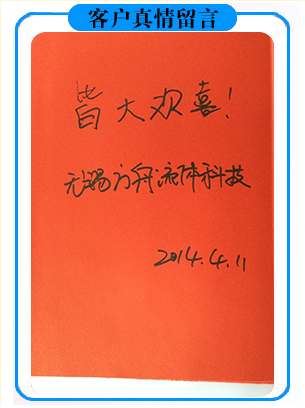 客户真情留言
皆大欢喜!
无锡方舟流体科技
2014.4.11